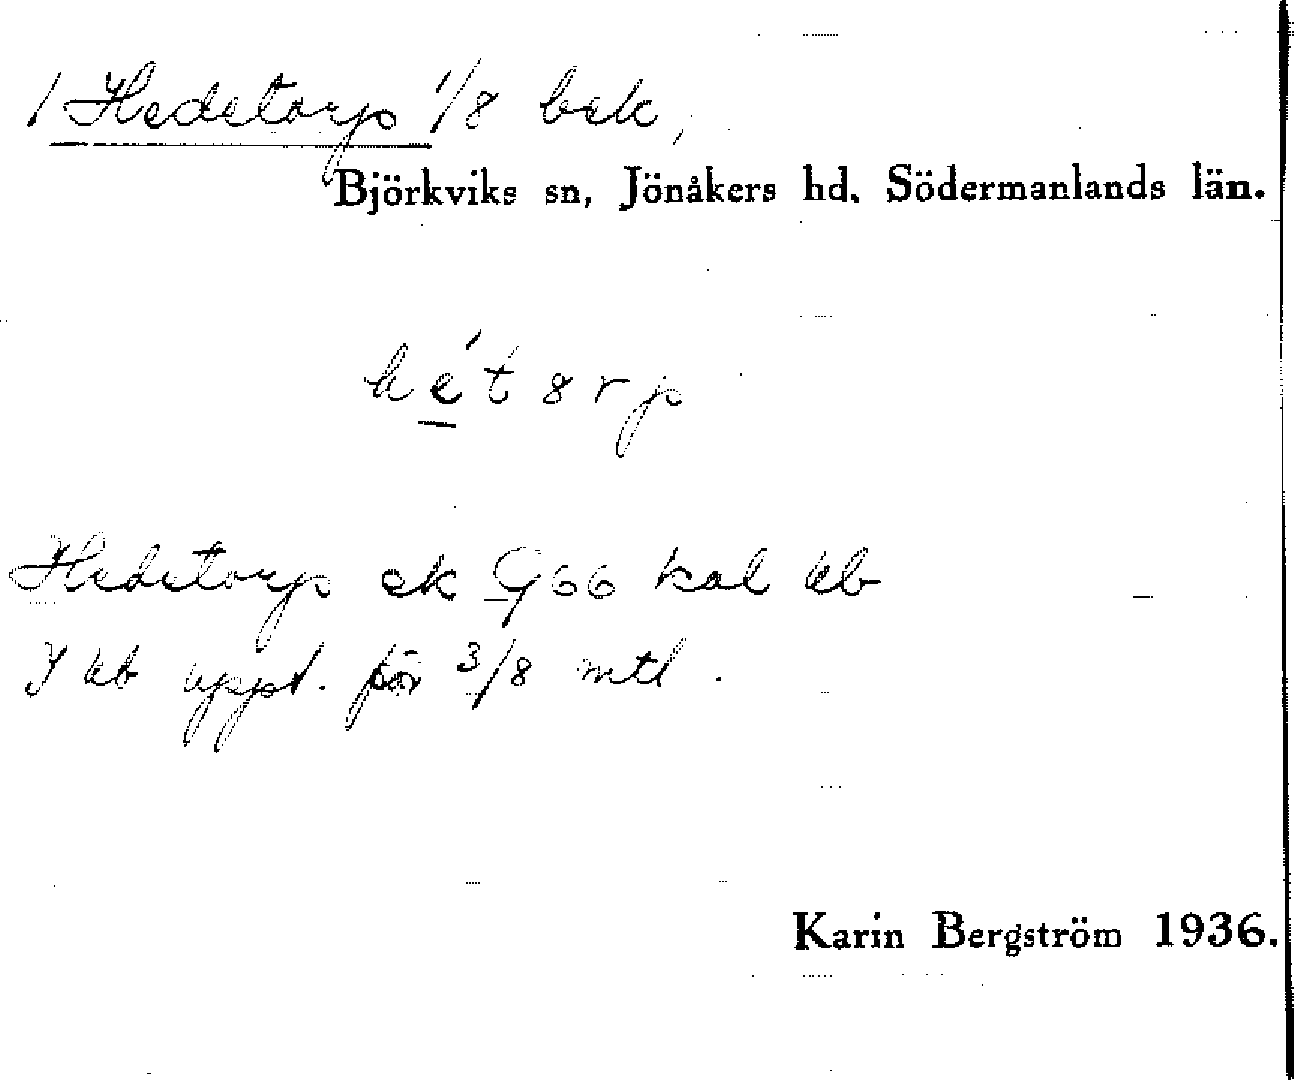 1 Hedetorp 1/8 bek,
Björkviks sn, Jönåkers hd. Södermanlands län.
hét8rp
Hedetorp ek G66 kal kb
I kb uppt. för 3/8 mtl.
Karin Bergström 1936.